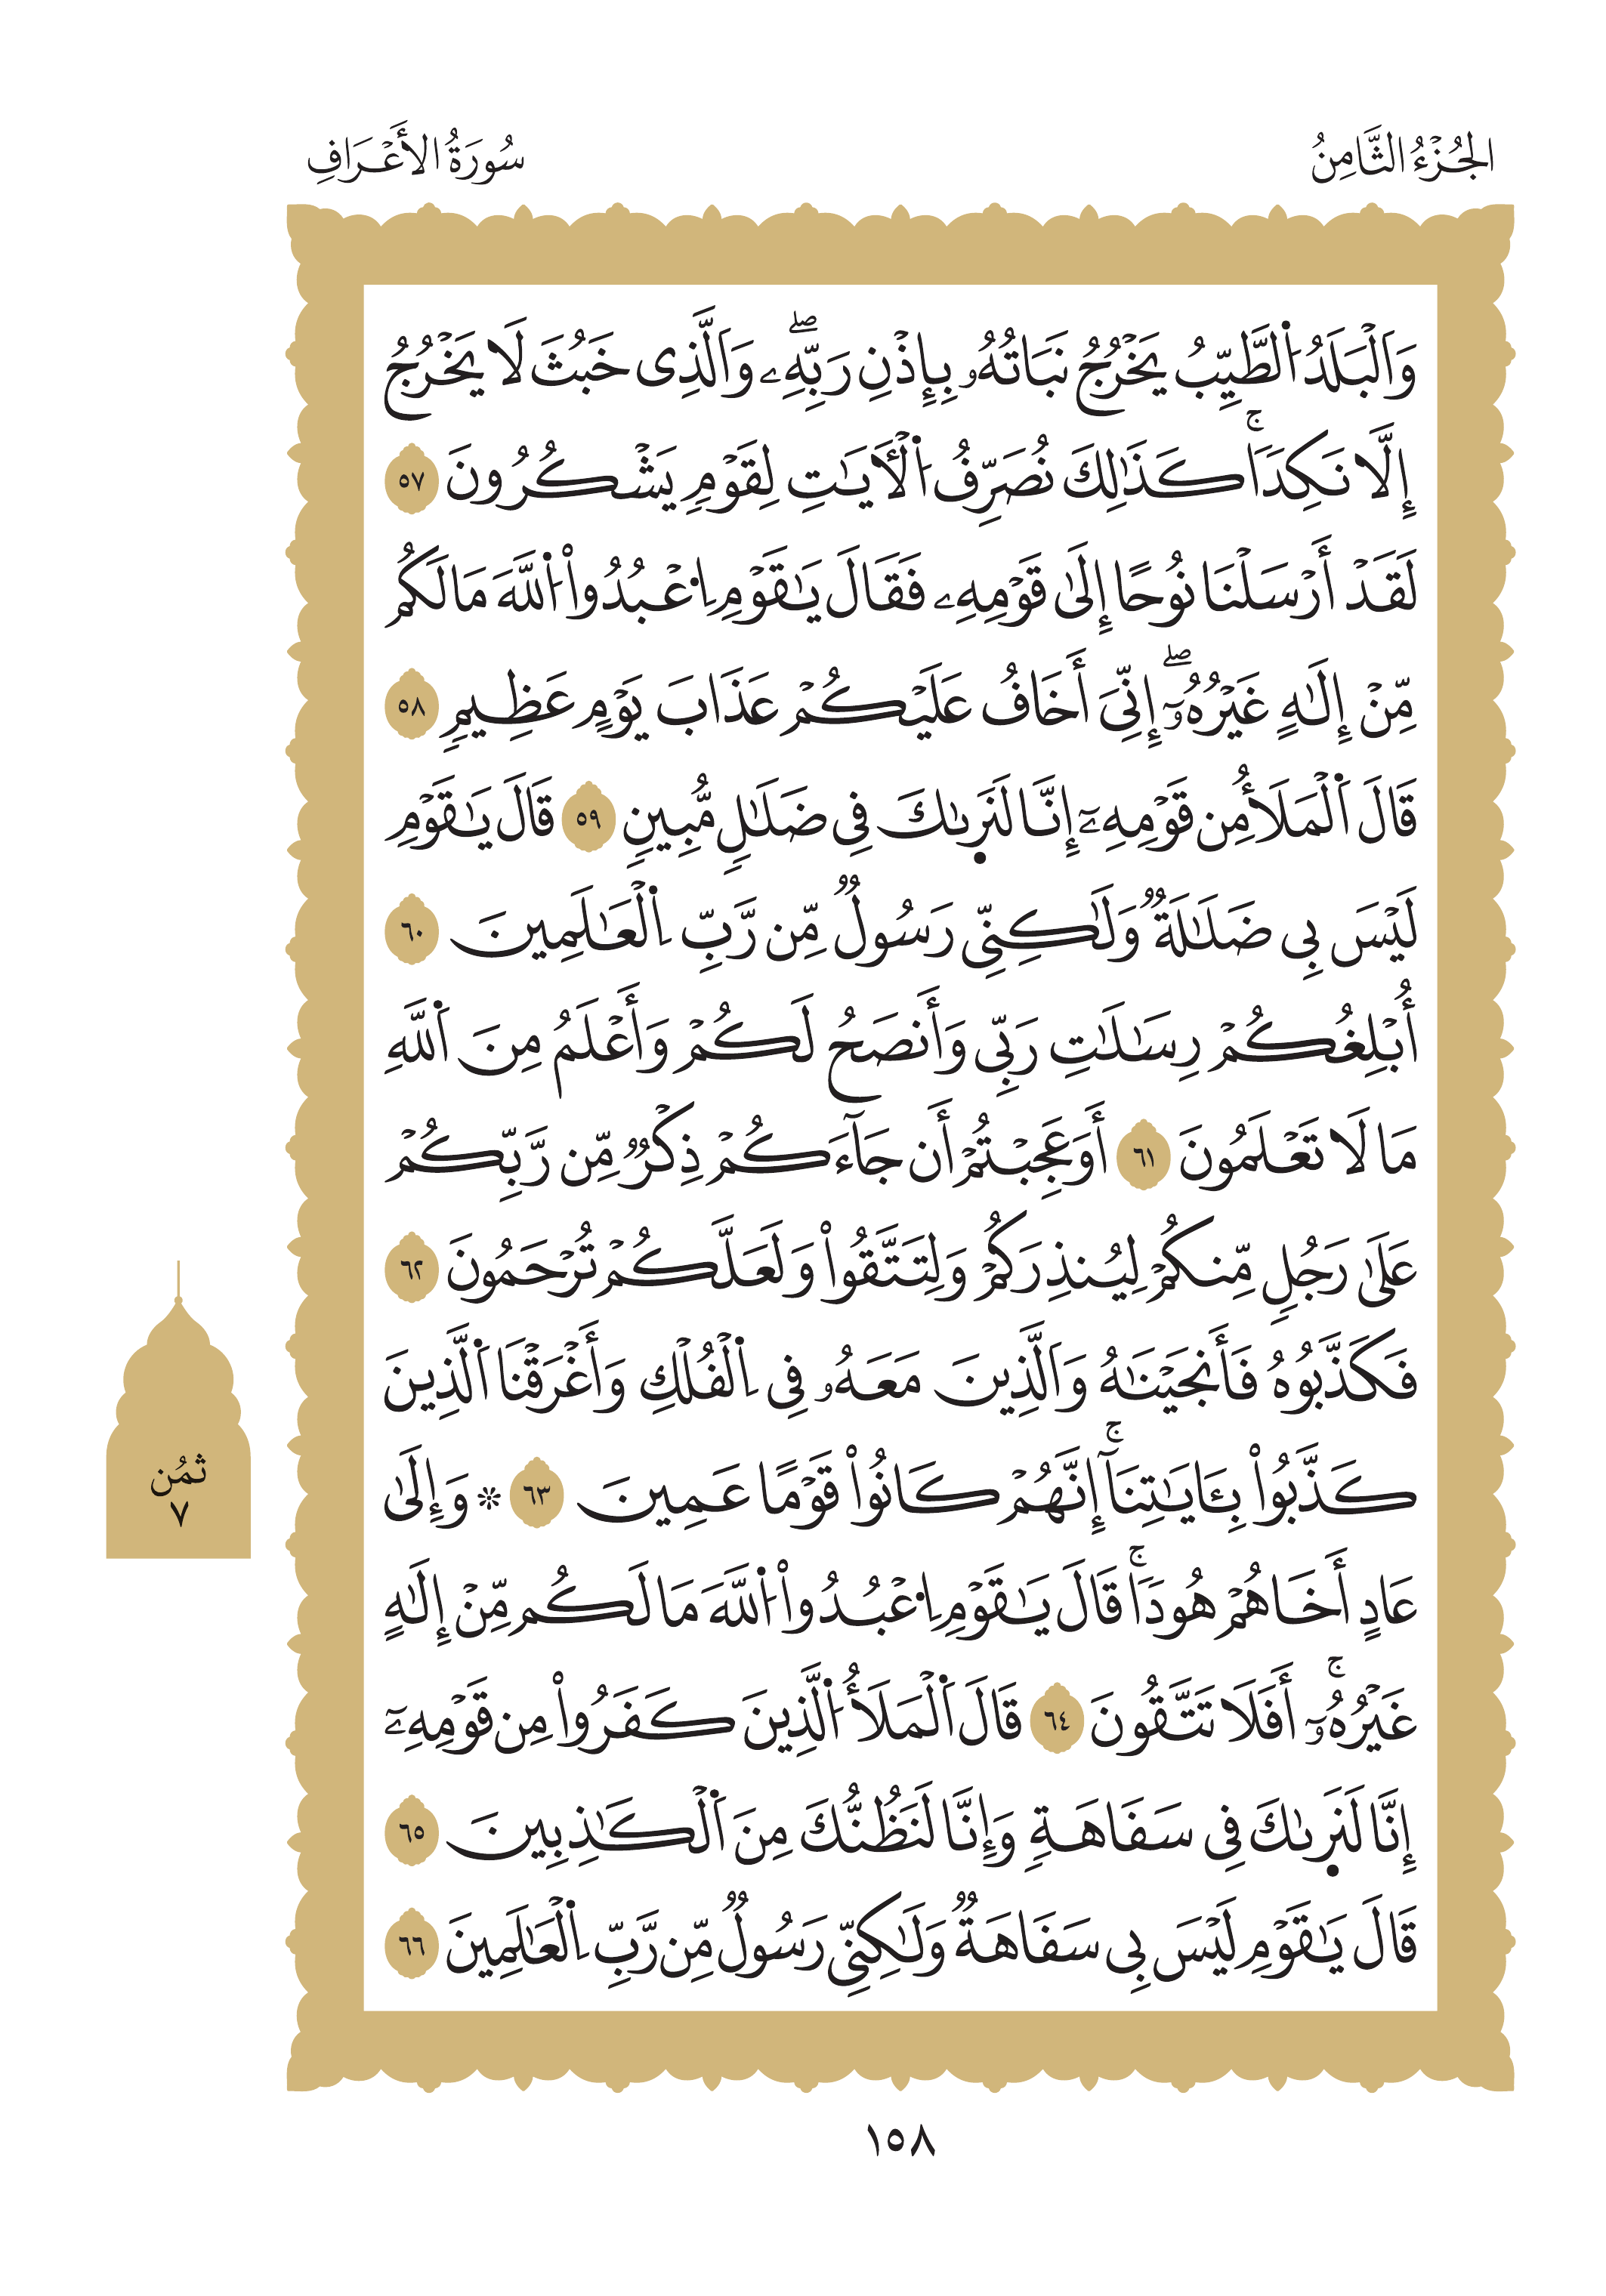 الجُزْءُ الثَّامِنُ
سُورَةُ الأَعْرَافِ
وَاَلْبَلَدُ اُ۬لطَّيِّبُ يَخْرُجُ نَبَاتُهُۥ بِإِذْنِ رَبِّهِۦۖ وَاَلَّذِى خَبُثَ لَا يَخْرُجُ
إِلَّا نَكِدًاۚ كَذَٰلِكَ نُصَرِّفُ اُ۬لْأٓيَٰتِ لِقَوْمٍ يَشْكُرُونَ ٥٧
لَقَدْ أَرْسَلْنَا نُوحًا إِلَىٰ قَوْمِهِۦ فَقَالَ يَٰقَوْمِ اِ۟عْبُدُواْ اُ۬للَّهَ مَا لَكُم
مِّنْ إِلَٰهٍ غَيْرُهُۥٓۖ إِنِّىَ أَخَافُ عَلَيْكُمْ عَذَابَ يَوْمٍ عَظِيمٍ ٥٨
قَالَ اَ۬لْمَلَأُ مِن قَوْمِهِۦٓ إِنَّا لَنَر۪ىٰكَ فِى ضَلَٰلٍ مُّبِينٍ ٥٩ قَالَ يَٰقَوْمِ
لَيْسَ بِى ضَلَٰلَةٌ وَلَٰكِنِّى رَسُولٌ مِّن رَّبِّ اِ۬لْعَٰلَمِينَ ٦٠
أُبْلِغُكُمْ رِسَٰلَٰتِ رَبِّى وَأَنصَحُ لَكُمْ وَأَعْلَمُ مِنَ اَ۬للَّهِ
مَا لَا تَعْلَمُونَ ٦١ أَوَعَجِبْتُمْ أَن جَآءَكُمْ ذِكْرٌ مِّن رَّبِّكُمْ
عَلَىٰ رَجُلٍ مِّنكُمْ لِيُنذِرَكُمْ وَلِتَتَّقُواْ وَلَعَلَّكُمْ تُرْحَمُونَ ٦٢
فَكَذَّبُوهُ فَأَنجَيْنَٰهُ وَاَلَّذِينَ مَعَهُۥ فِى اِ۬لْفُلْكِ وَأَغْرَقْنَا اَ۬لَّذِينَ
كَذَّبُواْ بِـَٔايَٰتِنَآۚ إِنَّهُمْ كَانُواْ قَوْمًا عَمِينَ ٦٣ ۞ وَإِلَىٰ
عَادٍ أَخَاهُمْ هُودًاۚ قَالَ يَٰقَوْمِ اِ۟عْبُدُواْ اُ۬للَّهَ مَا لَكُم مِّنْ إِلَٰهٍ
غَيْرُهُۥٓۚ أَفَلَا تَتَّقُونَ ٦٤ قَالَ اَ۬لْمَلَأُ اُ۬لَّذِينَ كَفَرُواْ مِن قَوْمِهِۦٓ
إِنَّا لَنَر۪ىٰكَ فِى سَفَاهَةٍ وَإِنَّا لَنَظُنُّكَ مِنَ اَ۬لْكَٰذِبِينَ ٦٥
قَالَ يَٰقَوْمِ لَيْسَ بِى سَفَاهَةٌ وَلَٰكِنِّى رَسُولٌ مِّن رَّبِّ اِ۬لْعَٰلَمِينَ ٦٦
ثمُن
٧
١٥٨